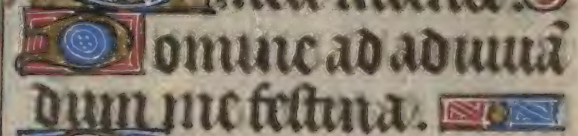 Domine ad adiuuã
dum me festina.